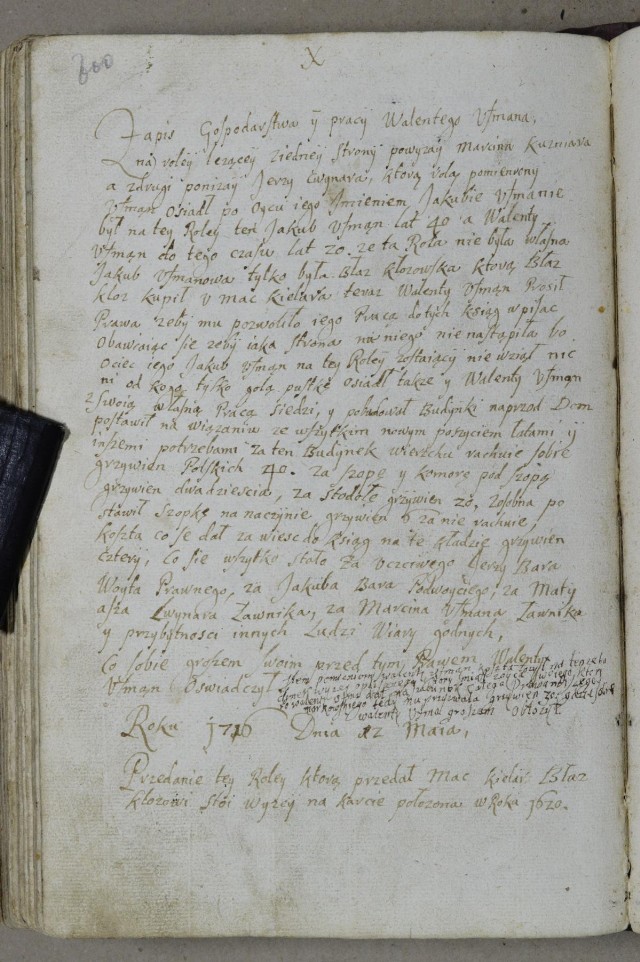 600
X
Zapis Gospodarstwa ÿ pracÿ Walentego Vſmana,
na roleÿ leząceÿ ziedneÿ Stronÿ powyzaÿ Marcina Kuzniara
a zdrugi ponizaÿ Jerzy Cwÿnara, ktorą rolą pomieniony
Vſmąn osiadł po Oÿcu iego Jmieniem Jakubie Vſmanie
był na teÿ Roleÿ ten Jakub Vſmąn lat 40 a Walentÿ
Vſmąn do tego czaſu lat 20. ze ta Rola nie była własna
Jakub Vſmanowa tylko była Błaz kłozowska ktorą Błaz
kloz kupił v mac kielara teraz Walenty Vſmąn Prosił
Prawa zebÿ mu pozwoliło iego Pracą do tych ksiąg wpisac
Obawiaiąc sie zebÿ iaka strona na niego nie nastąpiła bo
Ociec iego Jakub Vſmąn na teÿ Roleÿ zostaiącÿ nie wziął nic
ni od kogo tylko gołą pustkę osiadł takze ÿ Walentÿ Vſmąn
z Swoią własną Pracą siedzi, y pobudował Budÿnki naprzod Dom
postawił na wiązaniu ze wszÿtkim nowym poszÿciem łatami ÿ
inszemi potrzebami za ten Budÿnek wierzchu rachuie sobie
grzywien Polskich 40. za szopę y komorę pod szopą
grzywien dwadziescia, za Stodołe grzywien 20, zosobna po
stawił szopkę na naczÿnie grzywien 6 za nie rachuie,
koszta co se dał za wiesc do ksiąg na te kładzie grzywien
czterÿ, Co sie wszÿtko stało za Vczciwego Jerzÿ Bara
Woÿta Prawnego, za Jakuba Bara Podwoÿciego, za Matÿ
asza Cwynara Ławnika, za Marcina Vſmana Ławnika
y przÿbÿtnosci innych Ludzi Wiarÿ godnych,
Co sobie groszem swoim przed tym Prawem Walentÿ
Vſmąn Oswiadczÿł
grzywien
Walentÿ Vſmąn groszem Obłozÿł
Roku 1716 Dnia 12 Maia,
Przedanie teÿ Roleÿ ktorą przedał Mac kielar Błaz
kłozowi stoi Wyzeÿ na karcie połozona w Roku 1620.